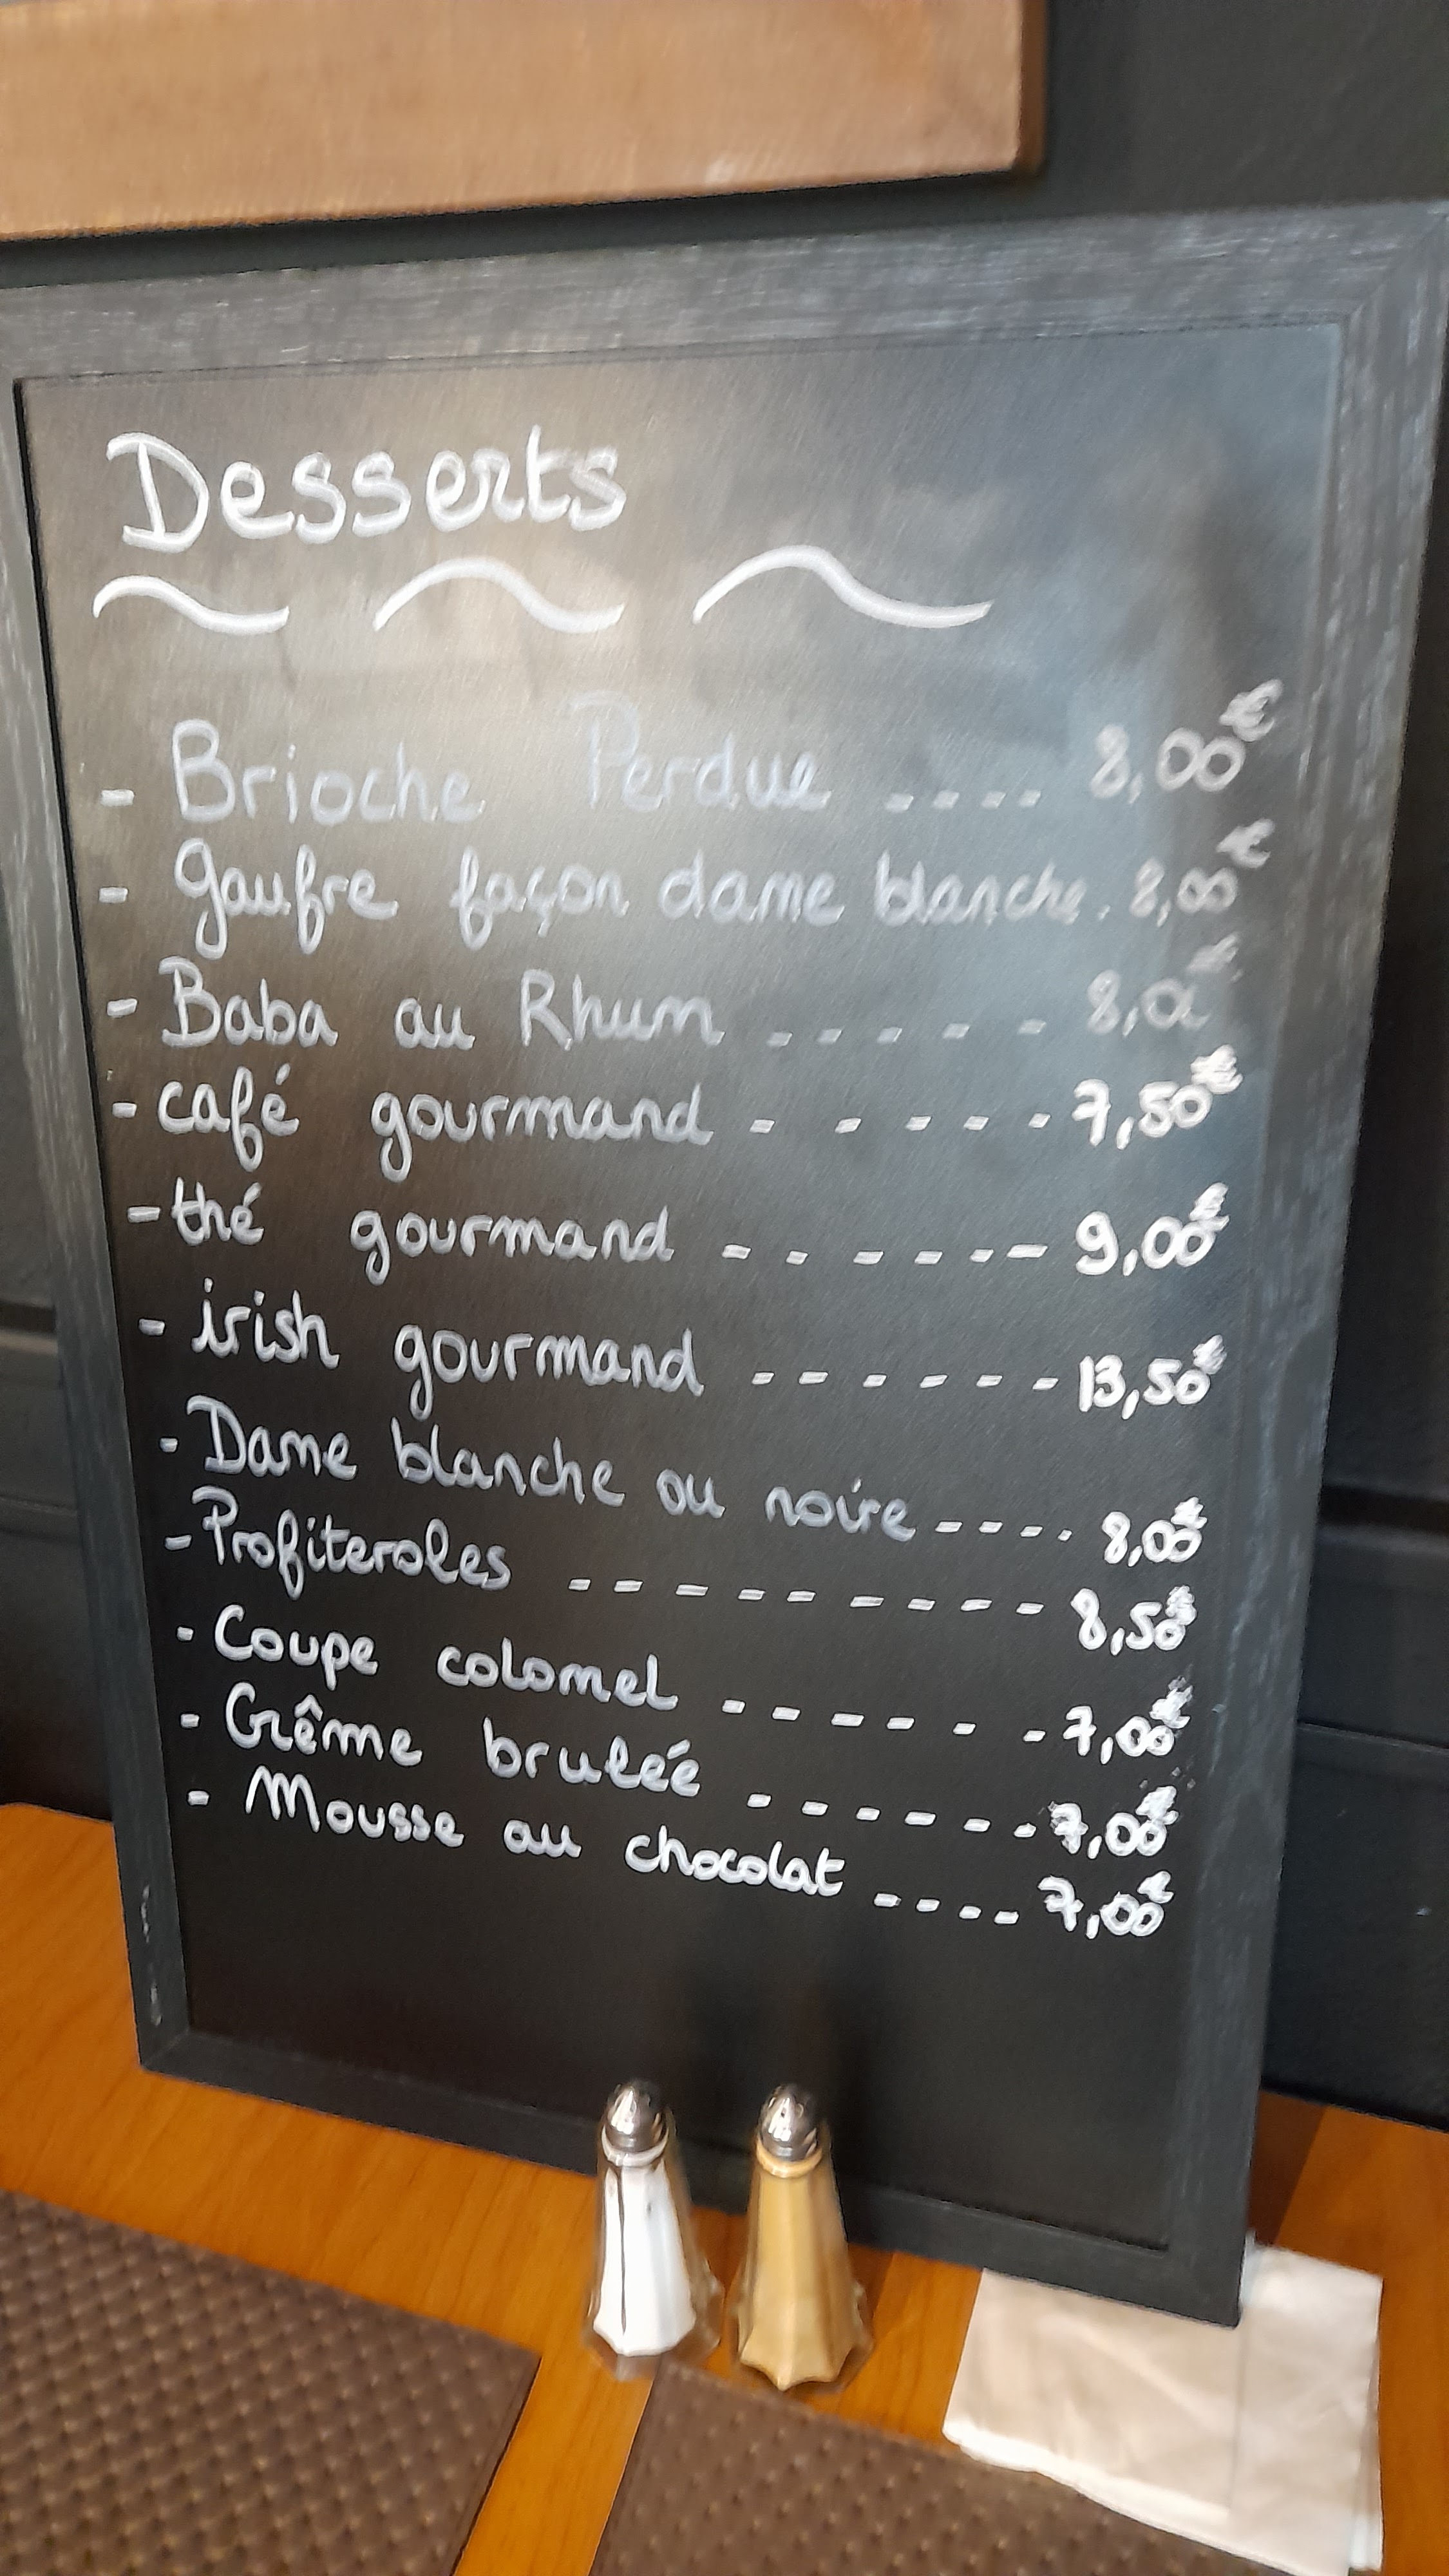 Desserts
- Brioche Perdue .... 8,00€
- Gaufre façon dame blanche. 8,00€
- Baba au Rhum - - - - - 8,00€
- café gourmand - - - - - 7,50€
- thé gourmand - - - - - - 9,00€
- irish gourmand - - - - - - 13,50€
- Dame blanche ou noire - - - - 8,00€
- Profiteroles - - - - - - - - - 8,50€
- Coupe colomel - - - - - - 7,00€
- Crême brulée - - - - - - 7,00€
- Mousse au chocolat - - - - 7,00€